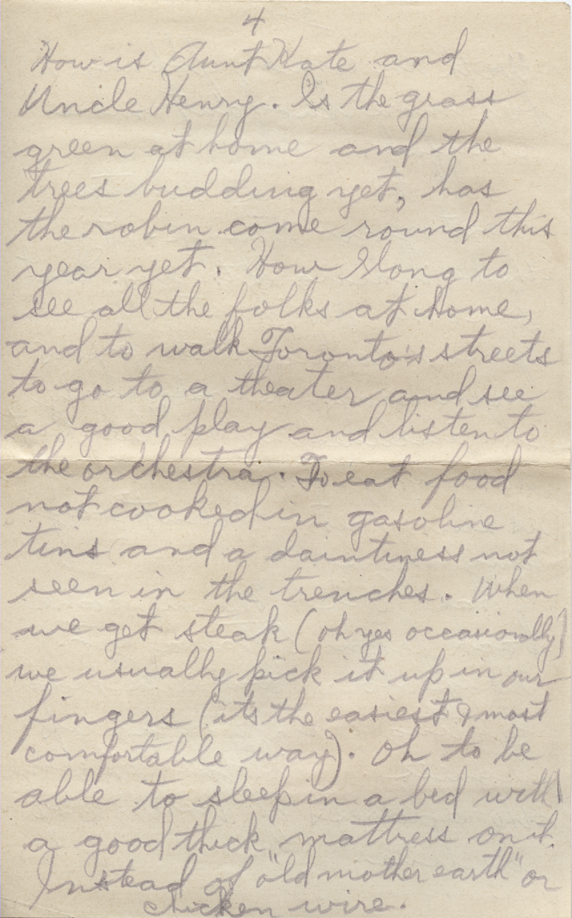 4
How is Aunt Kate and
Uncle Henry. Is the grass
green at home and the
trees budding yet, has
the robin come round this
year yet. How I long to
see all the folks at home,
and to walk Toronto's streets
to go to a theater and see
a good play and listen to
the orchestra. To eat food
not cooked in gasoline
tins and a daintiness not
seen in the trenches. When
we get steak (oh yes occasionally)
we usually pick it up in our
fingers (its the easiest & most
comfortable way). Oh to be
able to sleep in a bed with
a good thick mattress on it.
Instead of "old mother earth" or
chicken wire.